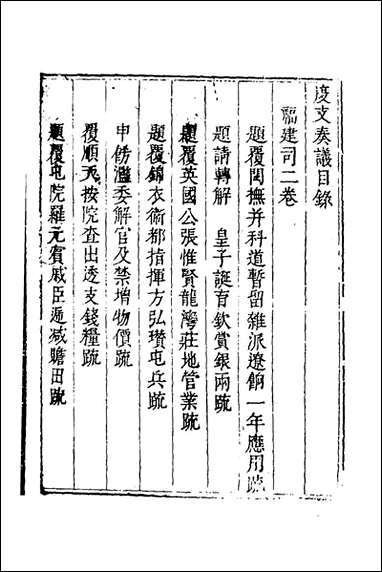 度支奏議目錄
福建司二卷
題覆閩撫并科道暫留雜派遼餉一年應用疏
題請轉解 皇子誕育欽賞銀兩疏
題覆英國公張惟賢龍灣莊地管業疏
題覆錦衣衛都指揮方弘瓚屯兵疏
申飭濫委解官及禁增物價疏
覆順天按院査出透支錢糧疏
題覆屯院羅元賓戚臣遞減贍田疏